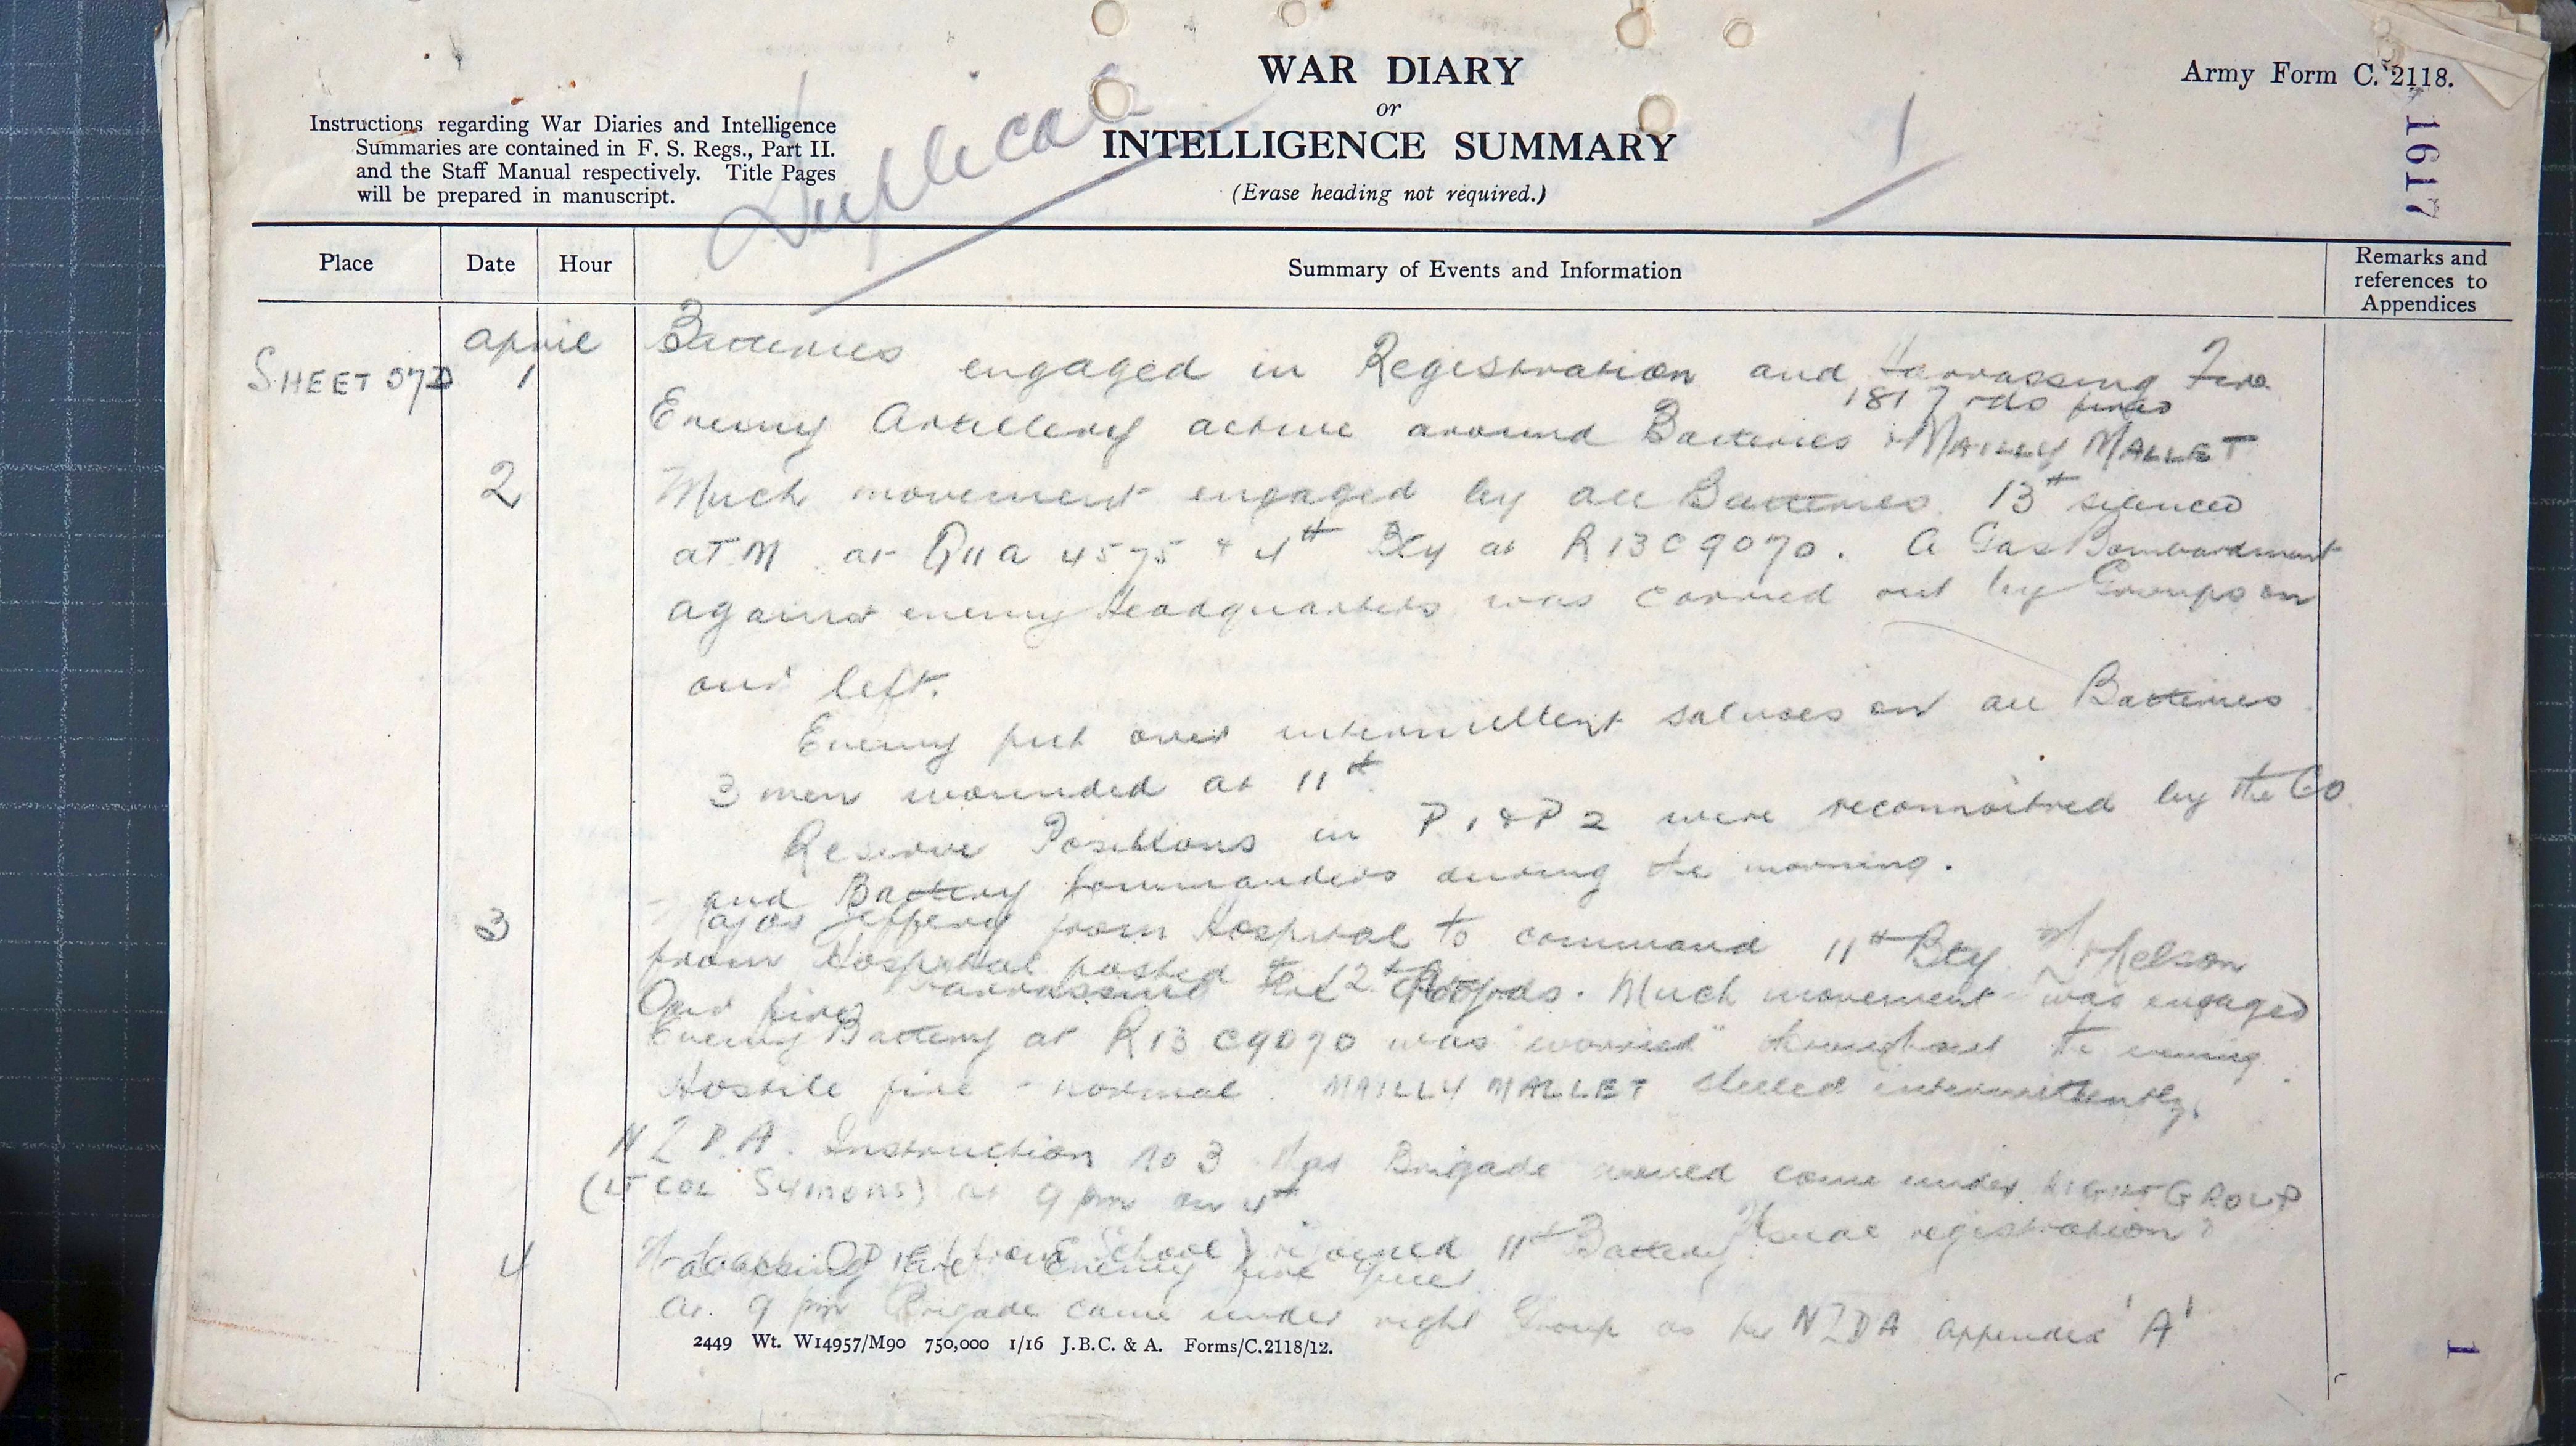 WAR DIARY
or
INTELLIGENCE SUMMARY
(Erase heading not required.)
Army Form C. 2118.
Instructions regarding War Diaries and Intelligence
Summaries are contained in F. S. Regs., Part II.
and the Staff Manual respectively. Title Pages
will be prepared in manuscript.
Duplicate
1
1617
Place Date Hour Summary of Events and Information Remarks and references to Appendices
SHEET 57D
April
1
Batteries engaged in Registration and Harrassing Fire
1817 rds fired
Enemy Artillery active around Batteries & MAILLY MALLET
2
Much movement engaged by all Batteries. 13th silenced
a T.M. at Q11a 4575 & 4th Bty at R13C9070. A Gas Bombardment
against enemy Headquarters was carried out by Groups on
our left.
Enemy put over intermittent salvoes on all Batteries
3 men wounded at 11th.
Reserve Positions in P1 & P2 were reconnoitred by the CO
and Battery Commanders during the morning.
3
Major Jeffery from Hospital to command 11th Bty.
from Hospital posted to 12th
Our fire Harrassing Much movement was engaged
Enemy Battery at R13C9070 was "worried" throughout the evening.
Hostile fire - normal. MAILLY MALLET shelled intermittently.
N Z D.A. Instruction No 3 Brigade would come under RIGHT GROUP
(LT COL SYMONS) at 9 pm on 4th
4
(from School) rejoined 11th Battery Usual registration &
Harrassing Fire. Enemy fire quiet
At 9 pm Brigade came under right Group as per NZDA appendix 'A'
2449 Wt. W14957/M90 750,000 1/16 J.B.C. & A. Forms/C.2118/12.
1